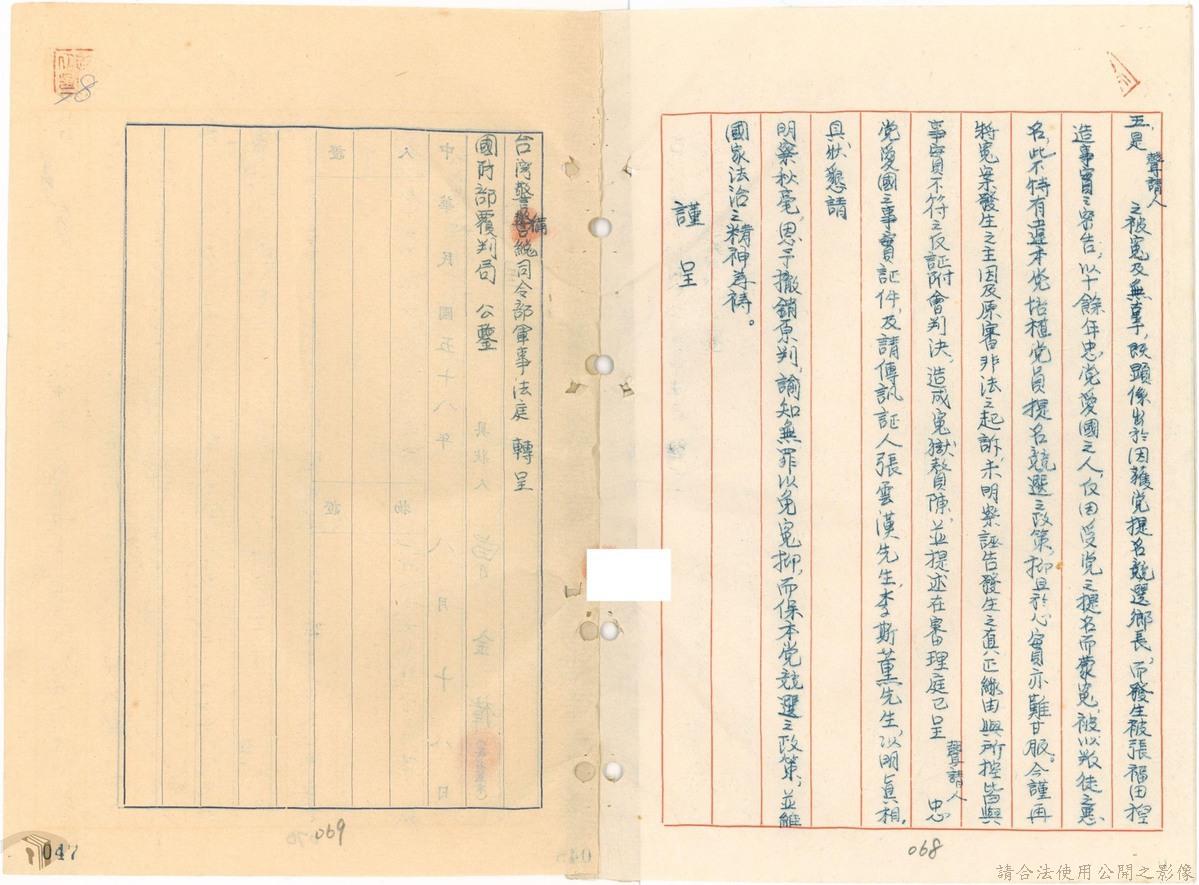 五、是聲請人之被冤及無辜，既顯係出於因獲党提名競選鄉長，而發生被張福田捏
造事實之密告，以十餘年忠党愛國之人，仅因受党之提名而蒙冤，被以叛徒之惡
名，此不特有違本党培植党員提名競選之政策，抑且於心實亦難甘服。今謹再
將冤案發生之主因及原審非法之起訴，未明察誣告發生之真正緣由與所控皆與
事實不符之反証附會判決，造成冤獄贅陳，並提述在審理庭已呈聲請人忠
党愛國之事實証件，及請傳訊証人張雲漢先生，李斯薰先生，以明真相。
具狀懇請
明察秋毫，恩予撤銷原判，諭知無罪以免冤抑，而保本党競選之政策，並維
國家法治之精神為禱。
謹呈
068
台灣警備總司令部軍事法庭 轉呈
國防部覆判局 公鑒
069
047
78
請合法使用公開之影像